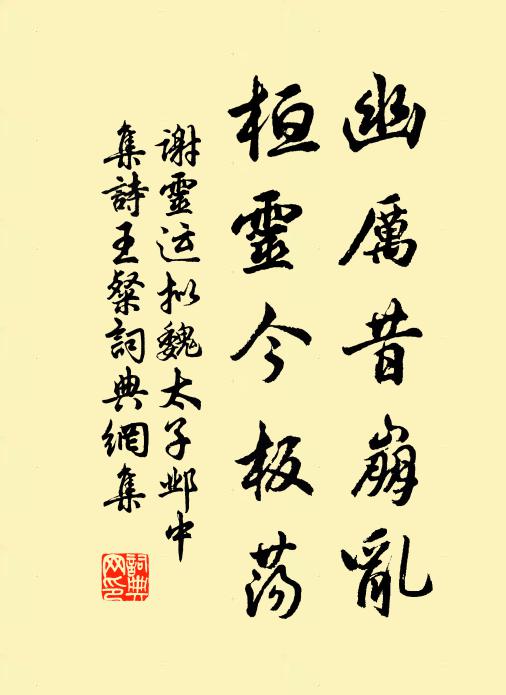 幽厲昔崩亂
桓靈今板蕩
謝靈运拟魏太子邺中
集詩王粲詞典網集
詞典網印